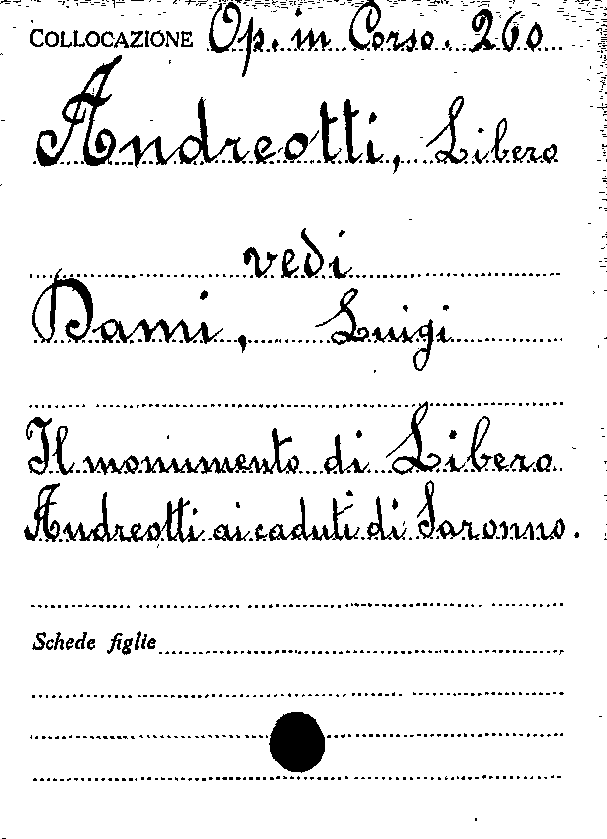 COLLOCAZIONE Op. in Corso. 260
Andreotti, Libero
vedi
Dami, Luigi
Il monumento di Libero
Andreotti ai caduti di Saronno.
Schede figlie